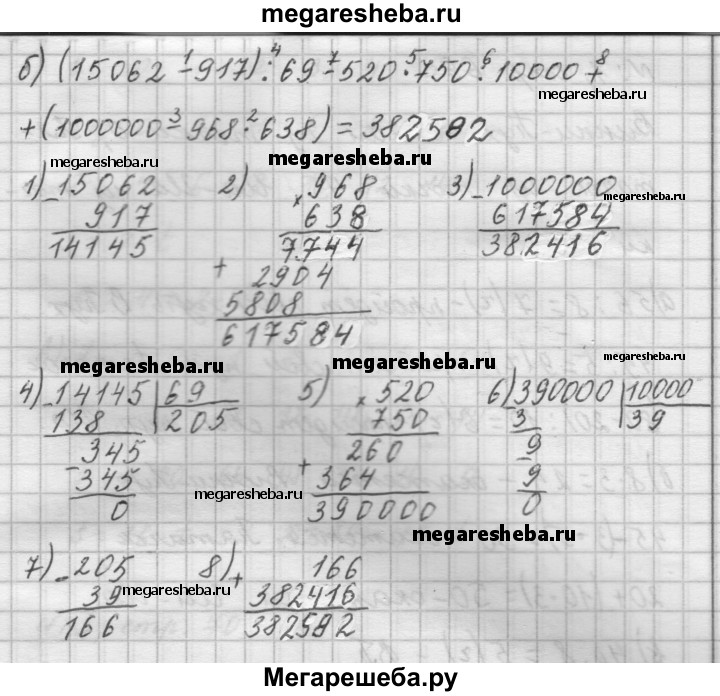 megaresheba.ru
б) (15062 - 917) : 69 - 520 · 750 : 10000 +
1 4 7 5 6 8
megaresheba.ru
+ (1000000 - 968 · 638) = 382582
3 2
megaresheba.ru megaresheba.ru
1) - 15062 2) × 968 3) - 1000000
917 638 617584
14145 7744 382416
+ 2904
5808
617584
megaresheba.ru megaresheba.ru megaresheba.ru
4) - 14145 | 69 5) × 520 6) 390000 | 10000
138 205 750 3 39
345 260 9
- 345 + 364 - 9
0 390000 0
megaresheba.ru
megaresheba.ru
7) - 205 8) + 166
megaresheba.ru megaresheba.ru
39 382416
166 382582
Мегарешеба.ру